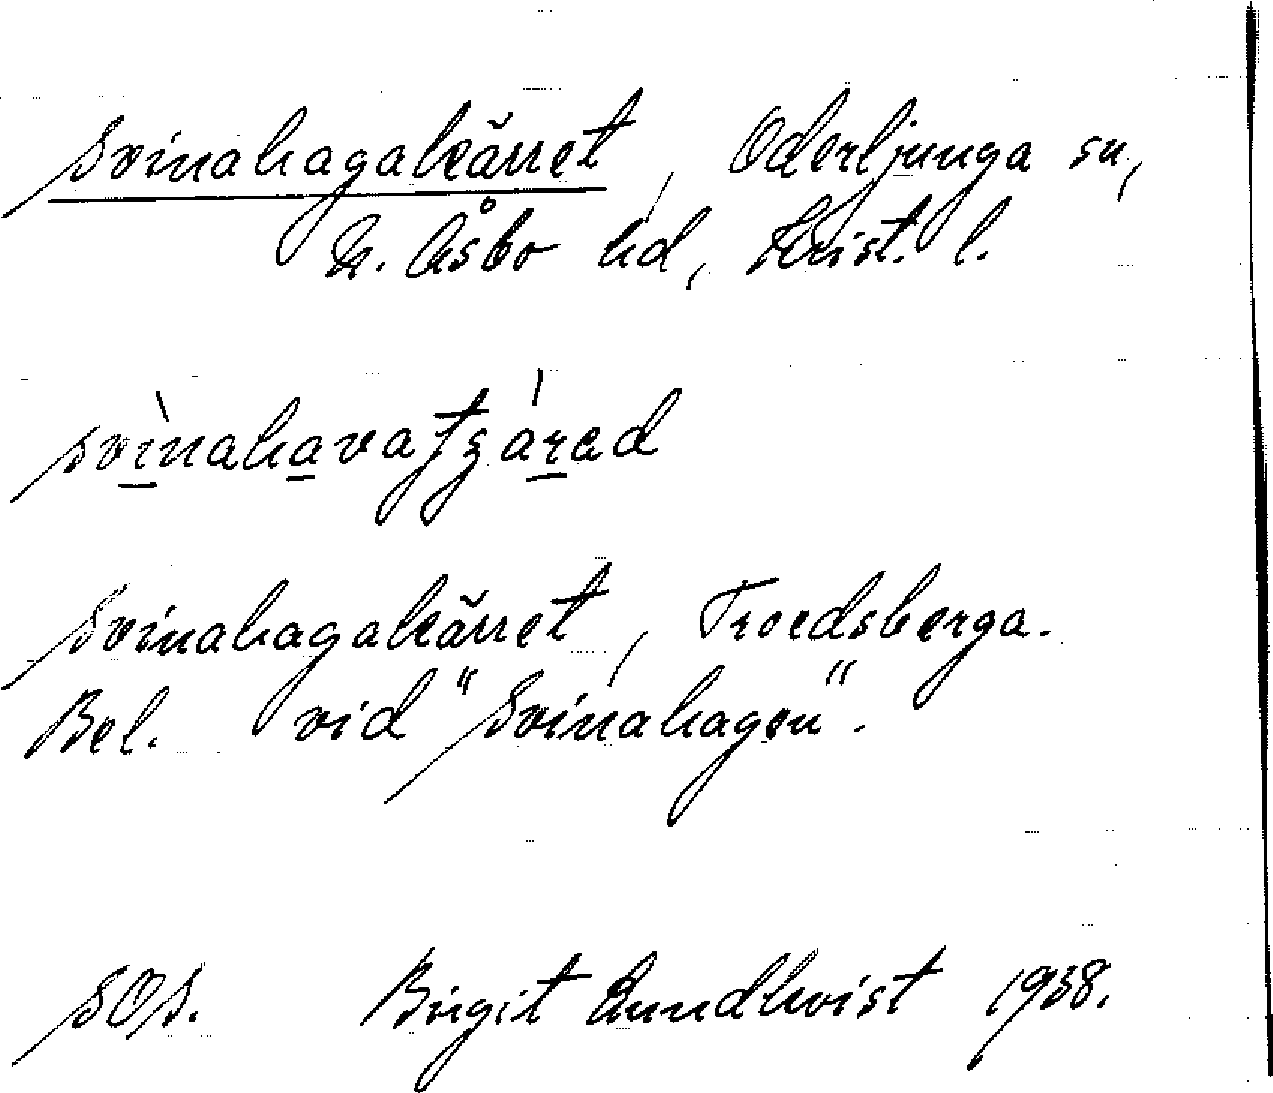 Svinahagakärret, Oderljunga sn,
N. Åsbo hd, Krist. l.
Svinahagakärret, Troedsberga.
Bel. vid "Svinahagen".
SOS. Birgit Lundkvist 1938.